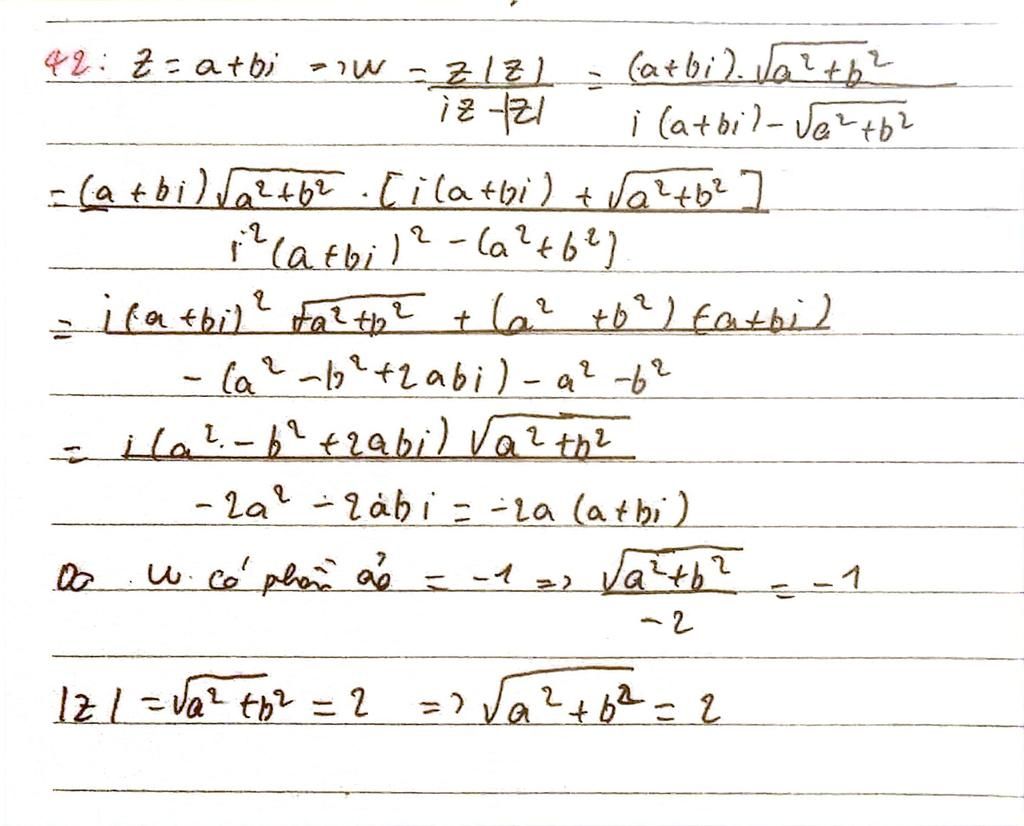 42: z = a+bi => w = z|z| / iz-|z| = (a+bi).√a²+b² / i(a+bi)-√a²+b²
= (a+bi)√a²+b² . [i(a+bi) + √a²+b²] / i²(a+bi)² - (a²+b²)
= i(a+bi)² √a²+b² + (a² +b²) (a+bi) / - (a² -b²+2abi) - a² -b²
= i(a².-b²+2abi) √a²+b² / -2a² - 2abi = -2a (a+bi)
Do w có phần ảo = -1 => √a²+b² / -2 = -1
|z| = √a²+b² = 2 => √a²+b² = 2